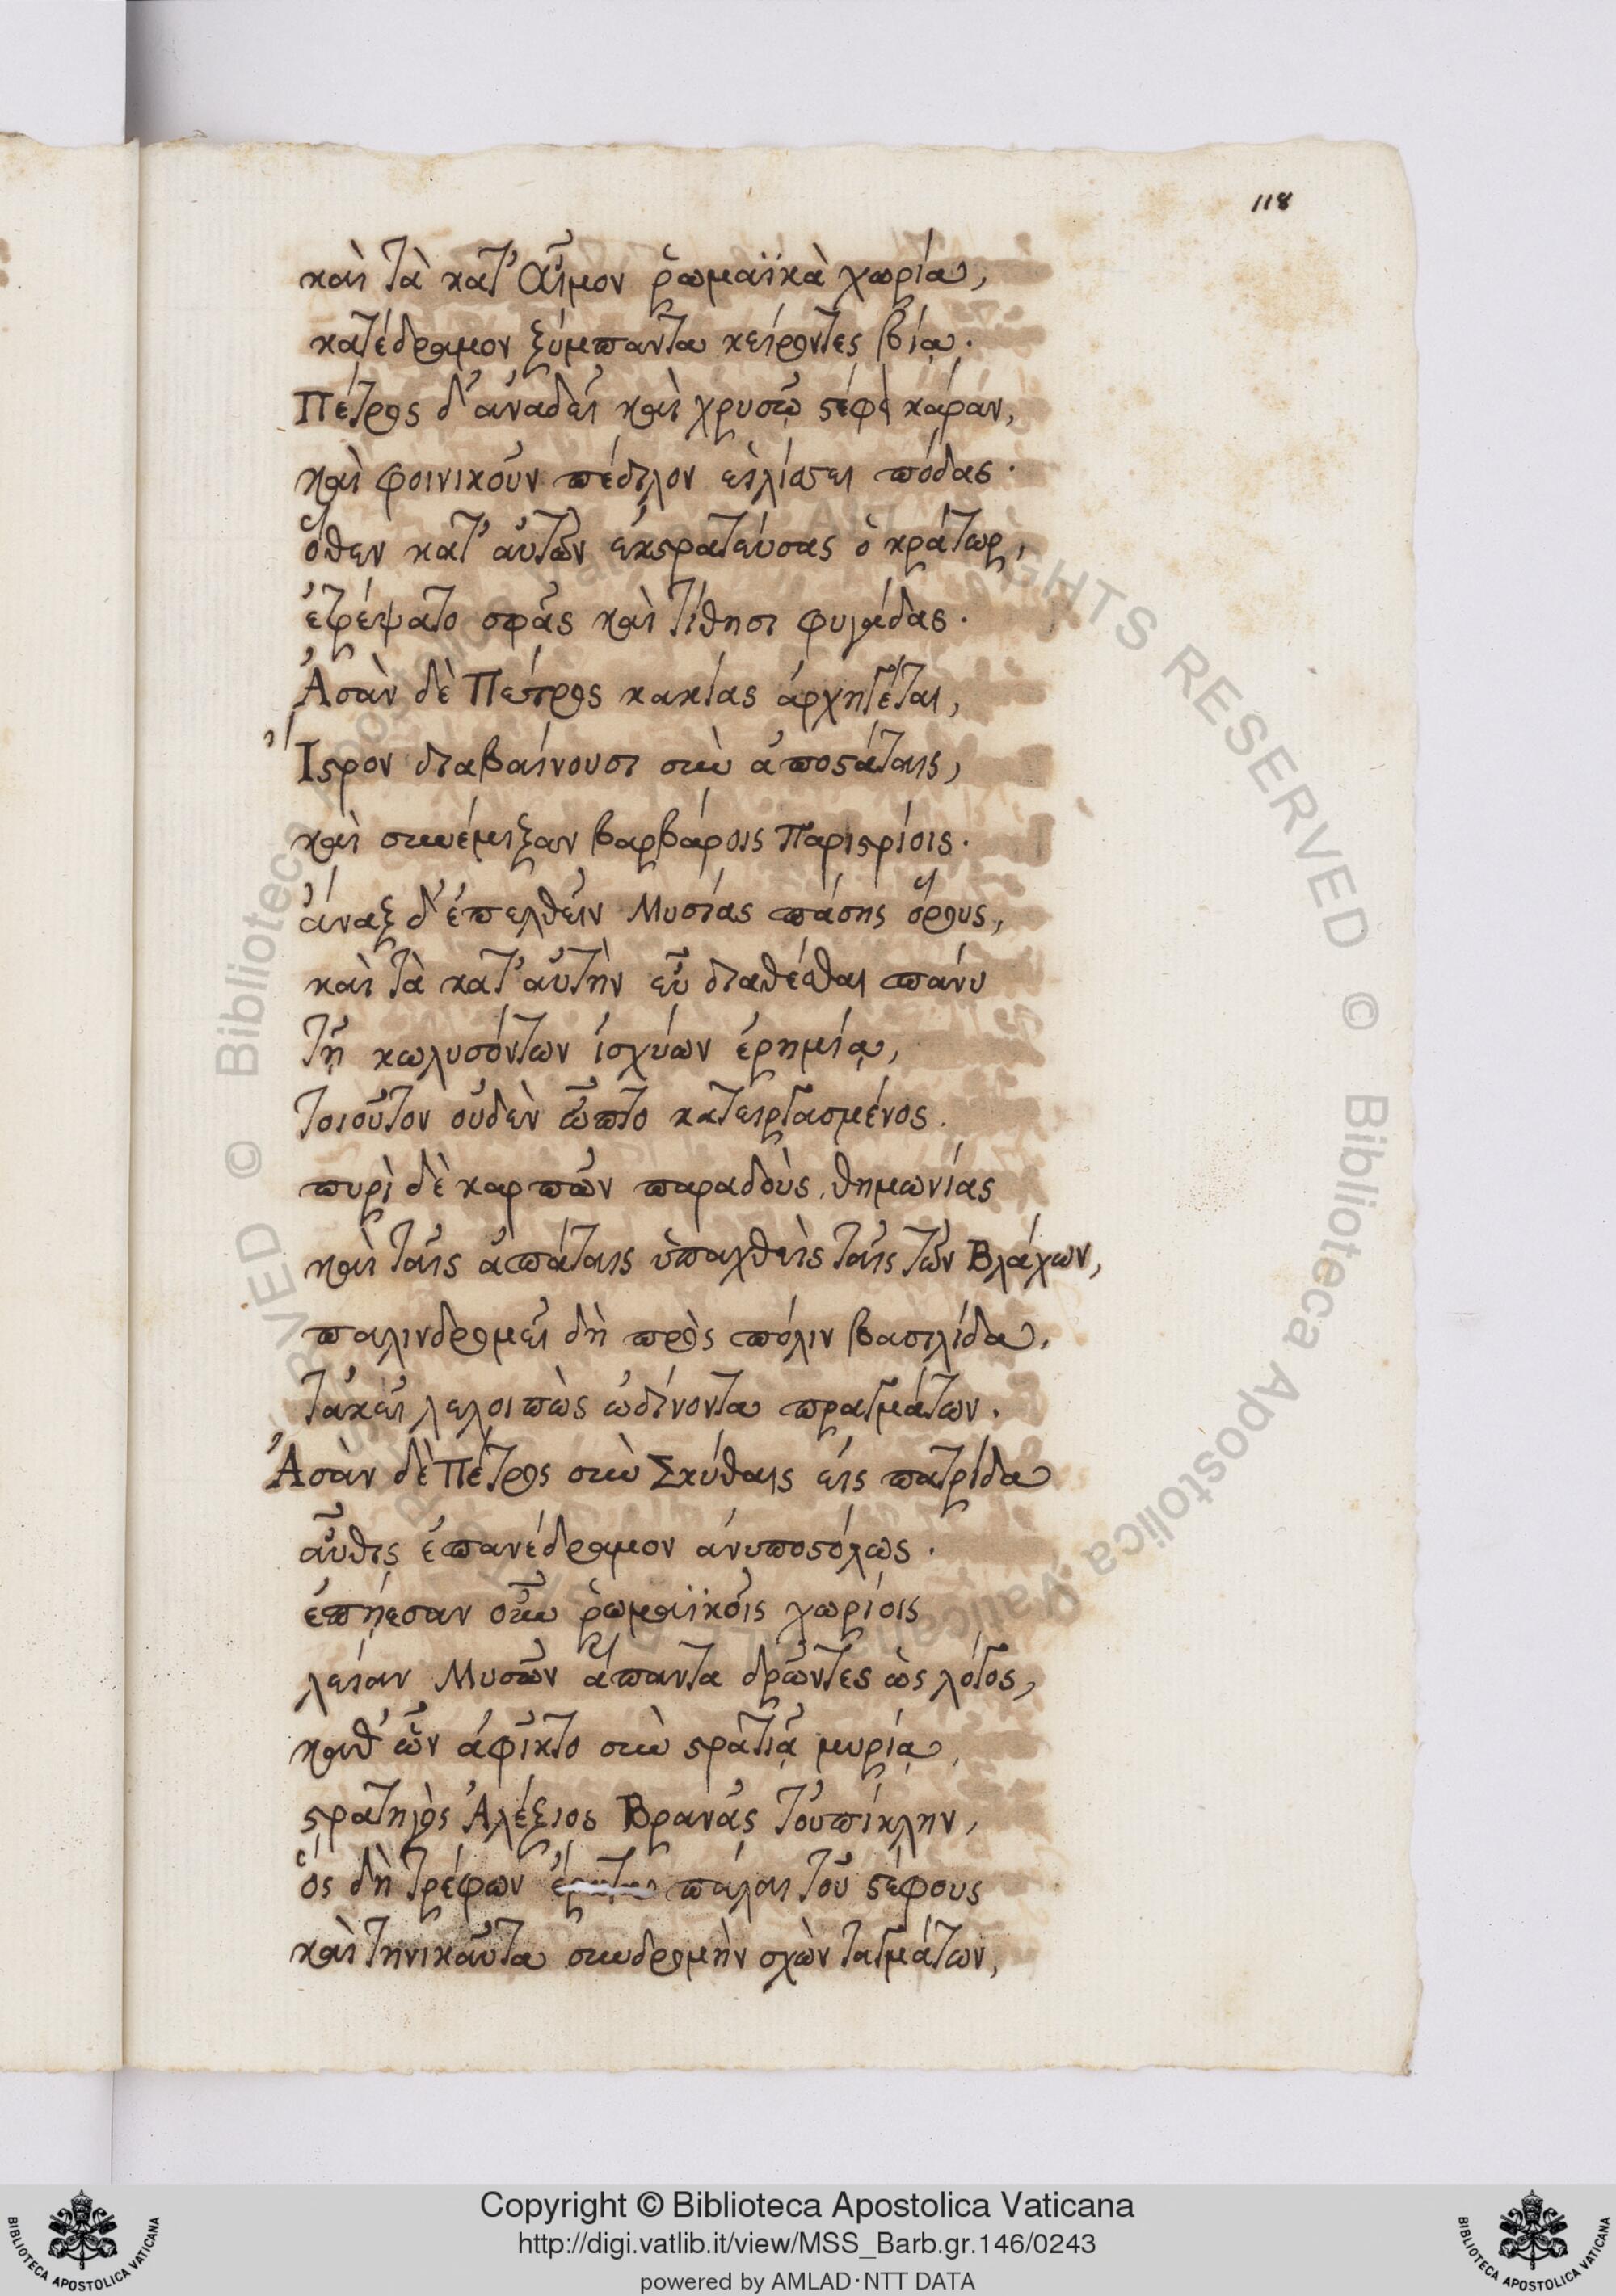 118
καὶ τὰ κατ' Αἷμον ῥωμαϊκὰ χωρία,
κατέδραμον ξύμπαντα κείροντες βίᾳ.
Πέτρος δ' ἀναδεῖ καὶ χρυσῷ στέφει κάραν,
καὶ φοινικοῦν πέδιλον εἰλίσσει πόδας.
ὅθεν κατ' αὐτῶν ἐκστρατεύσας ὁ κράτωρ,
ἐτρέψατο σφᾶς καὶ τίθησι φυγάδας.
Ἀσὰν δὲ Πέτρος κακίας ἀρχηγέται,
Ἴστρον διαβαίνουσι σὺν ἀποστάταις,
καὶ συνέμιξαν βαρβάροις Παριστρίοις.
ἄναξ δ' ἐπελθεῖν Μυσίας πάσης ὅρους,
καὶ τὰ κατ' αὐτὴν εὖ διαθέσθαι πάνυ
τῇ κωλυσόντων ἰσχύων ἐρημίᾳ,
τοιοῦτον οὐδὲν ὦπτο κατειργασμένος.
πυρὶ δὲ καρπῶν παραδοὺς θημωνίας
καὶ ταῖς ἀπάταις ὑπαχθεὶς ταῖς τῶν Βλάχων,
παλινδρομεῖ δὴ πρὸς πόλιν βασιλίδα,
τἀκεῖ λελοιπὼς ὠδίνοντα πραγμάτων.
Ἀσὰν δὲ Πέτρος σὺν Σκύθαις εἰς πατρίδα
αὖθις ἐπανέδραμον ἀνυποστόλως.
ἐπῄεσαν οὖν ῥωμαϊκοῖς χωρίοις
λείαν Μυσῶν ἅπαντα δρῶντες ὡς λόγος,
καθ' ὧν ἀφῖκτο σὺν στρατιᾷ μυρίᾳ,
στρατηγὸς Ἀλέξιος Βρανᾶς τοὐπίκλην,
ὃς δὴ τρέφων πάλαι τοῦ στέφους
καὶ τηνικαῦτα συνδρομὴν σχὼν ταγμάτων,
Copyright © Biblioteca Apostolica Vaticana
http://digi.vatlib.it/view/MSS_Barb.gr.146/0243
powered by AMLAD·NTT DATA
BIBLIOTECA APOSTOLICA VATICANA
BIBLIOTECA APOSTOLICA VATICANA